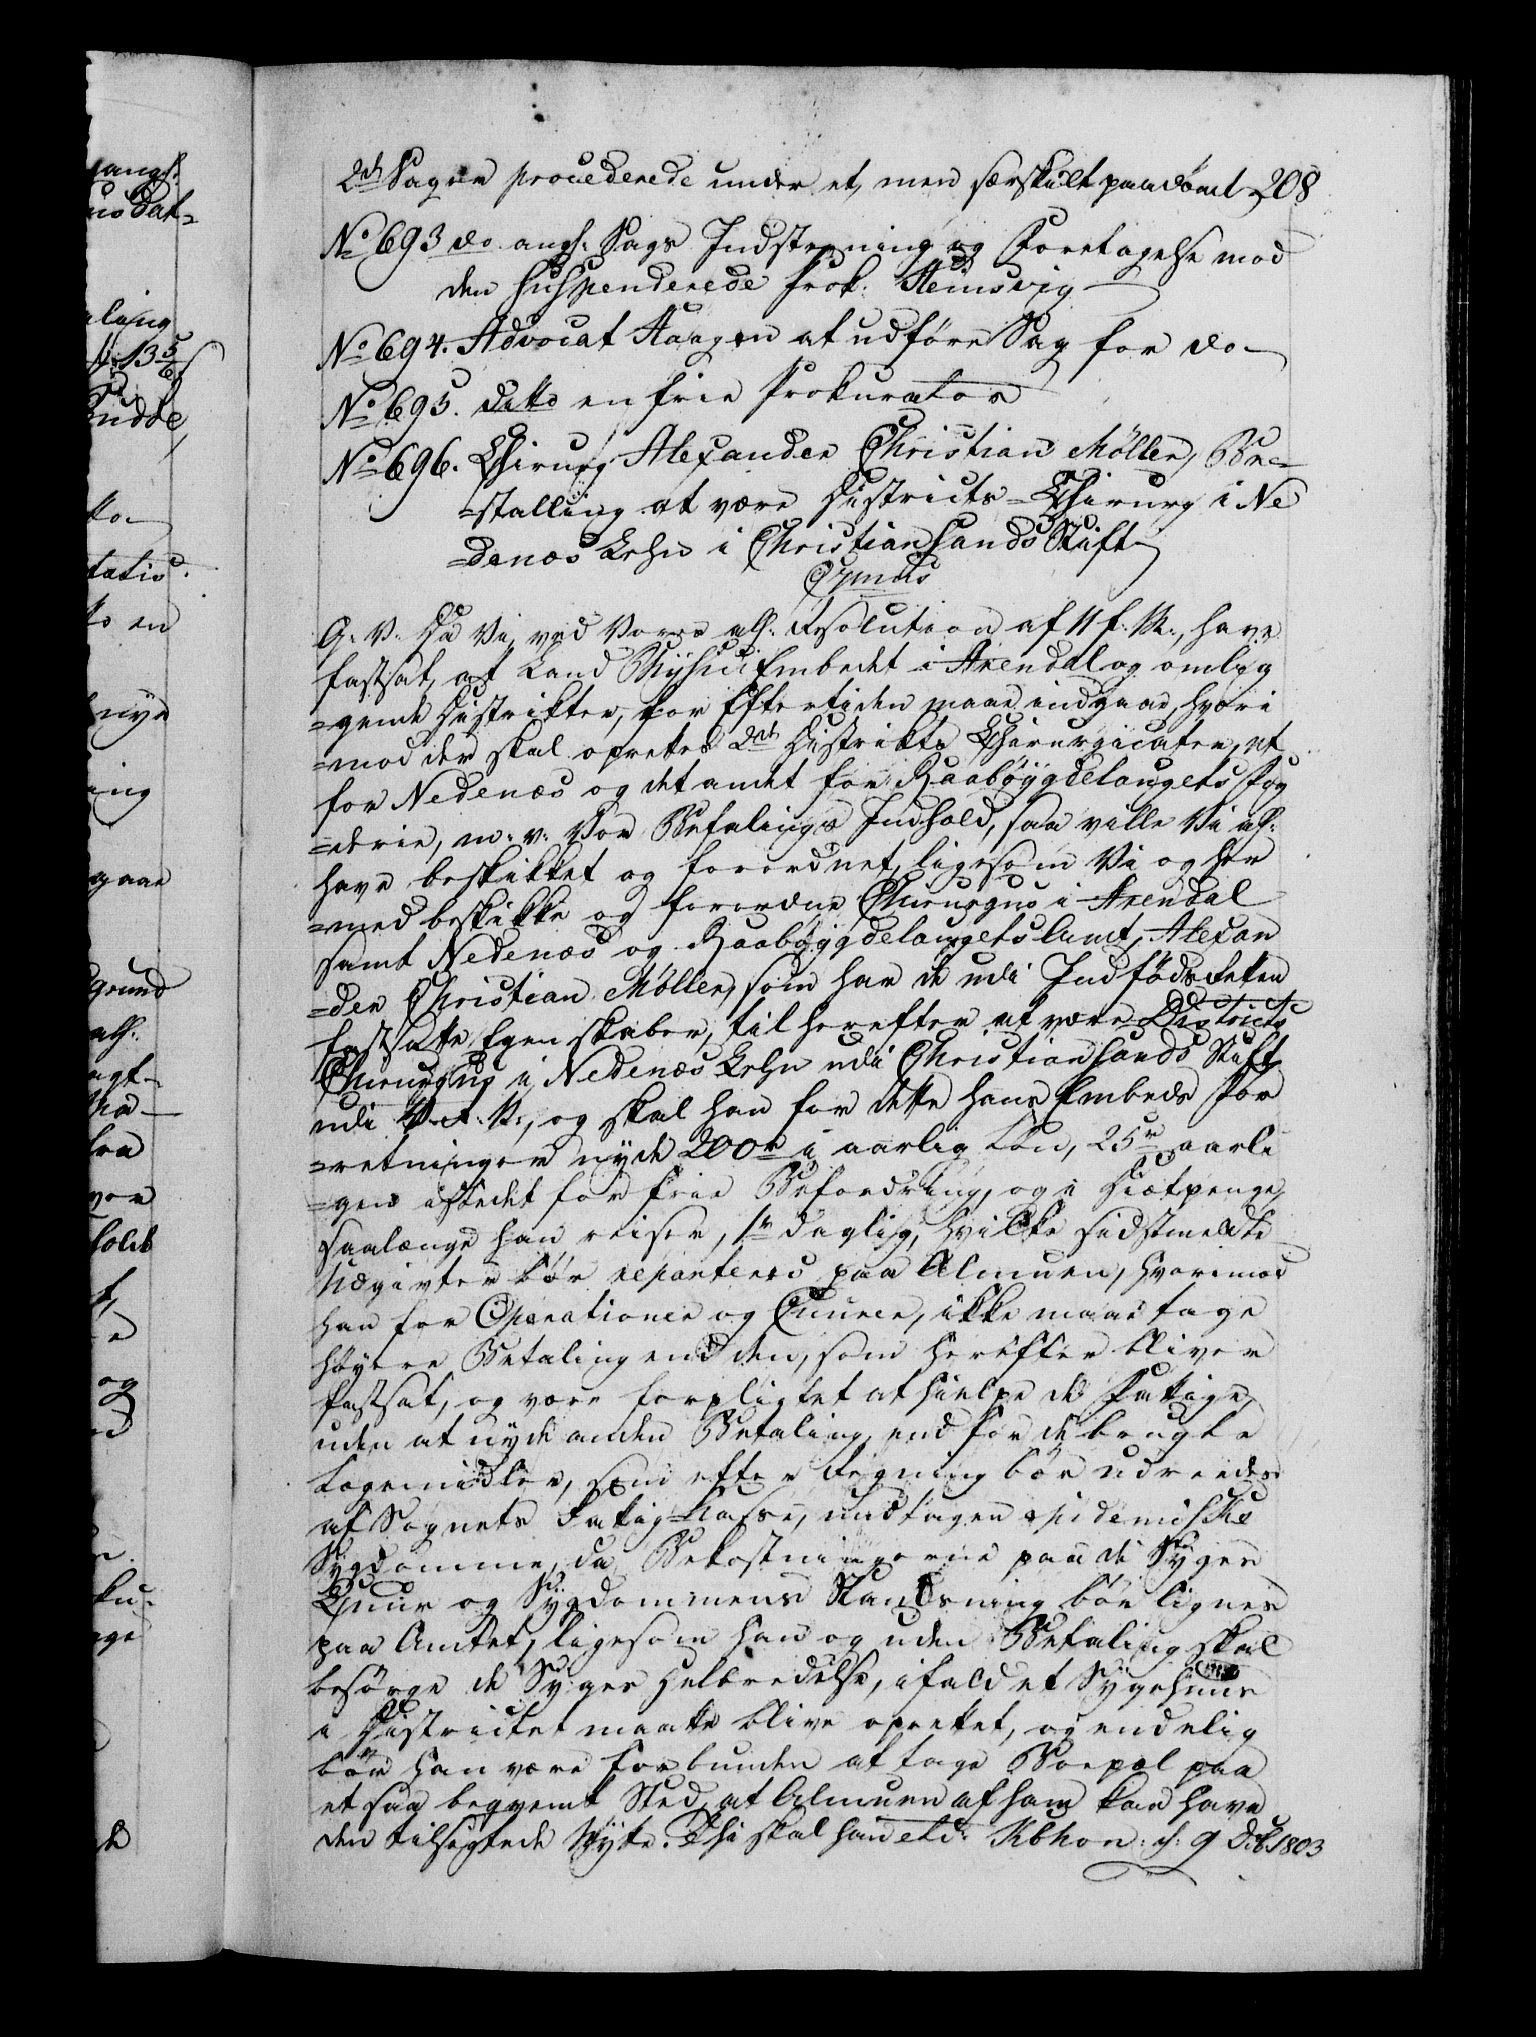 2de Sager procederede under et, men særskilt paadömt 208
No 693 do angl: Sags Indstevning og Foretagelse mod
den suspenderede Prok: Heinsvig
No 694. Advocat Aagen at udföre Sag for do
No 695. ditto en frie Prokurator
No 696. Chirurg Alexander Christian Möller, Be=
=stalling at være Districts-Chirurg i Ne
=denæs Lehn i Christiansands Stift
G: V: Da Vi, ved Vores all: Resolution af 11 f: M:, have
fastsat, at Land Physici Embedet i Arendal og omlig
=gende Distrikter, for Eftertiden maae indgaae, hvori
=mod der skal oprettes 2de Distrikts Chirurgicater, et
for Nedenæs og det andet for Raabøygdelaugets Fog
=derie, m: v: Vor Befalings Indhold, saa ville Vi all:
have beskikket og forordnet, ligesom Vi og her
=med beskikke og forordne Chirurgus i Arendal
samt Nedenæs og Raabøygdelaugets Amt, Alexan
=der Christian Møller, som har de udi Indfödsretten
fastsatte Egenskaber, til herefter at være Districts
Chirurgus i Nedenæs Lehn udi Christiansands Stift
udi V. R. N:, og skal han for dette hans Embeds For
=retninger nyde 200 r i aarlig Lön, 25 r aarli
=gen istedet for frie Befordring, og i Diætpenge,
saalænge han reiser, 1 r daglig, hvilke sidstmeldte
Udgivter bör reparteres paa Almuen, hvorimod
han for Operationer og Cuurer, ikke maae tage
höyere Betaling end den, som herefter bliver
fastsat, og være forpligtet at hielpe de Fattige,
uden at nyde anden Betaling, end for de brugte
Lægemidler, som efter Regning bör udredes
af Sognets Fattig-Kasse, undtagen epidemiske
Sygdomme, da Bekostningerne paa de Syges
Cuur og Sygdommens Standsning bör lignes
paa Amtet, ligesom han og uden Betaling skal
besörge de Syges Helbredelse, ifald et Sygehuus
i Districtet maatte blive oprettet, og endelig
bör han være forbunden at tage Boepæl paa
et saa beqvemt Sted, at Almuen af ham kan have
den tilsigtede Nytte. Thi skal han etc: Kbhvn: d: 9 Dcb 1803